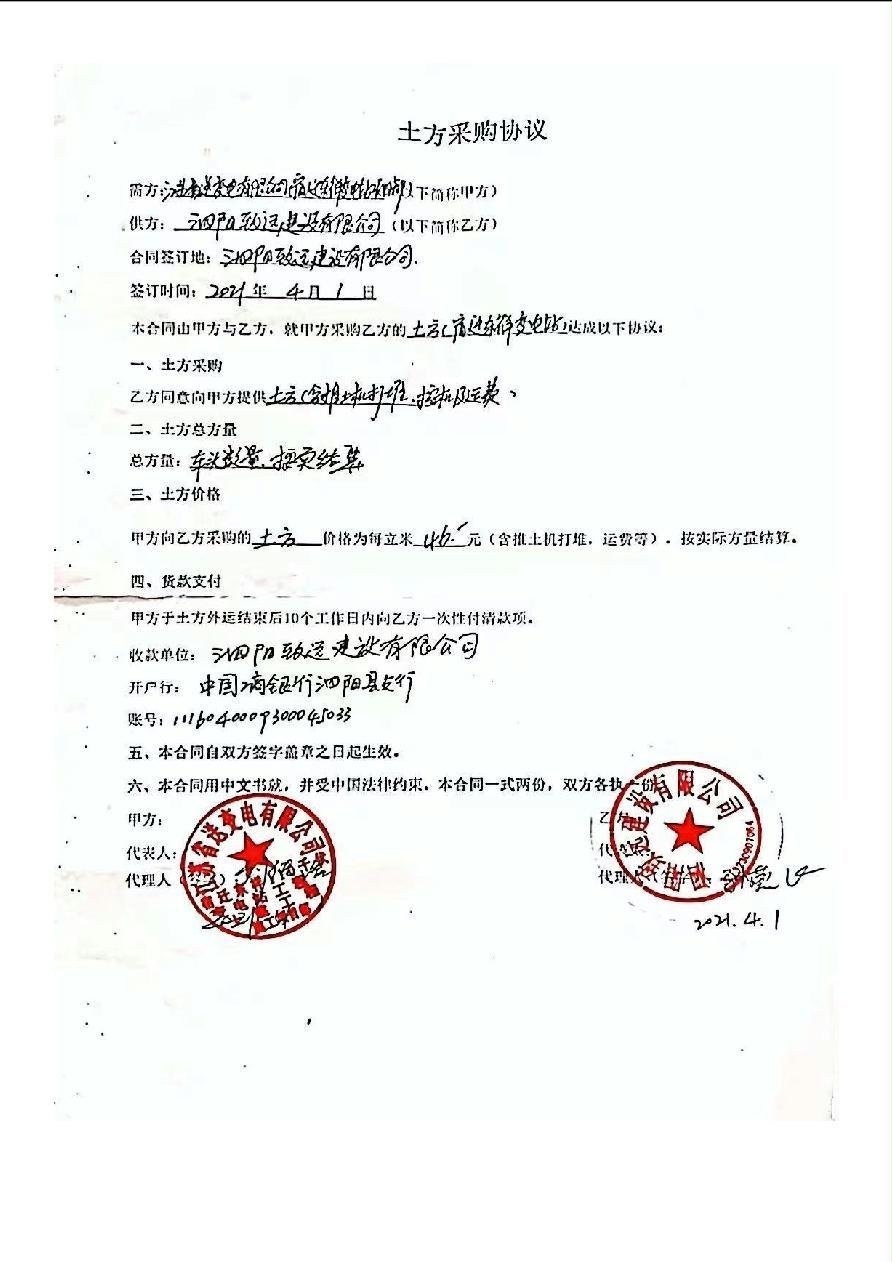 土方采购协议
需方：江苏省送变电有限公司宿迁东(以下简称甲方)
供方：泗阳致远建设有限公司(以下简称乙方)
合同签订地：泗阳致远建设有限公司.
签订时间：2021年 4月 1 日
本合同由甲方与乙方，就甲方采购乙方的土方(宿迁东 变电站)达成以下协议：
一、土方采购
乙方同意向甲方提供土方(含推土机打堆、挖机及运费、
二、土方总方量
总方量：车头数量、按实结算
三、土方价格
甲方向乙方采购的 土方 价格为每立米 46. 元（含推土机打堆，运费等），按实际方量结算。
四、货款支付
甲方于土方外运结束后10个工作日内向乙方一次性付清款项。
收款单位：泗阳致远建设有限公司
开户行：中国 银行泗阳县支行
账号：1116040009300045033
五、本合同自双方签字盖章之日起生效。
六、本合同用中文书就，并受中国法律约束，本合同一式两份，双方各执一份
甲方：
乙
代表人：
代
代理人
代理人
江苏省送变电有限公司
泗阳致远建设有限公司
2021.4.1